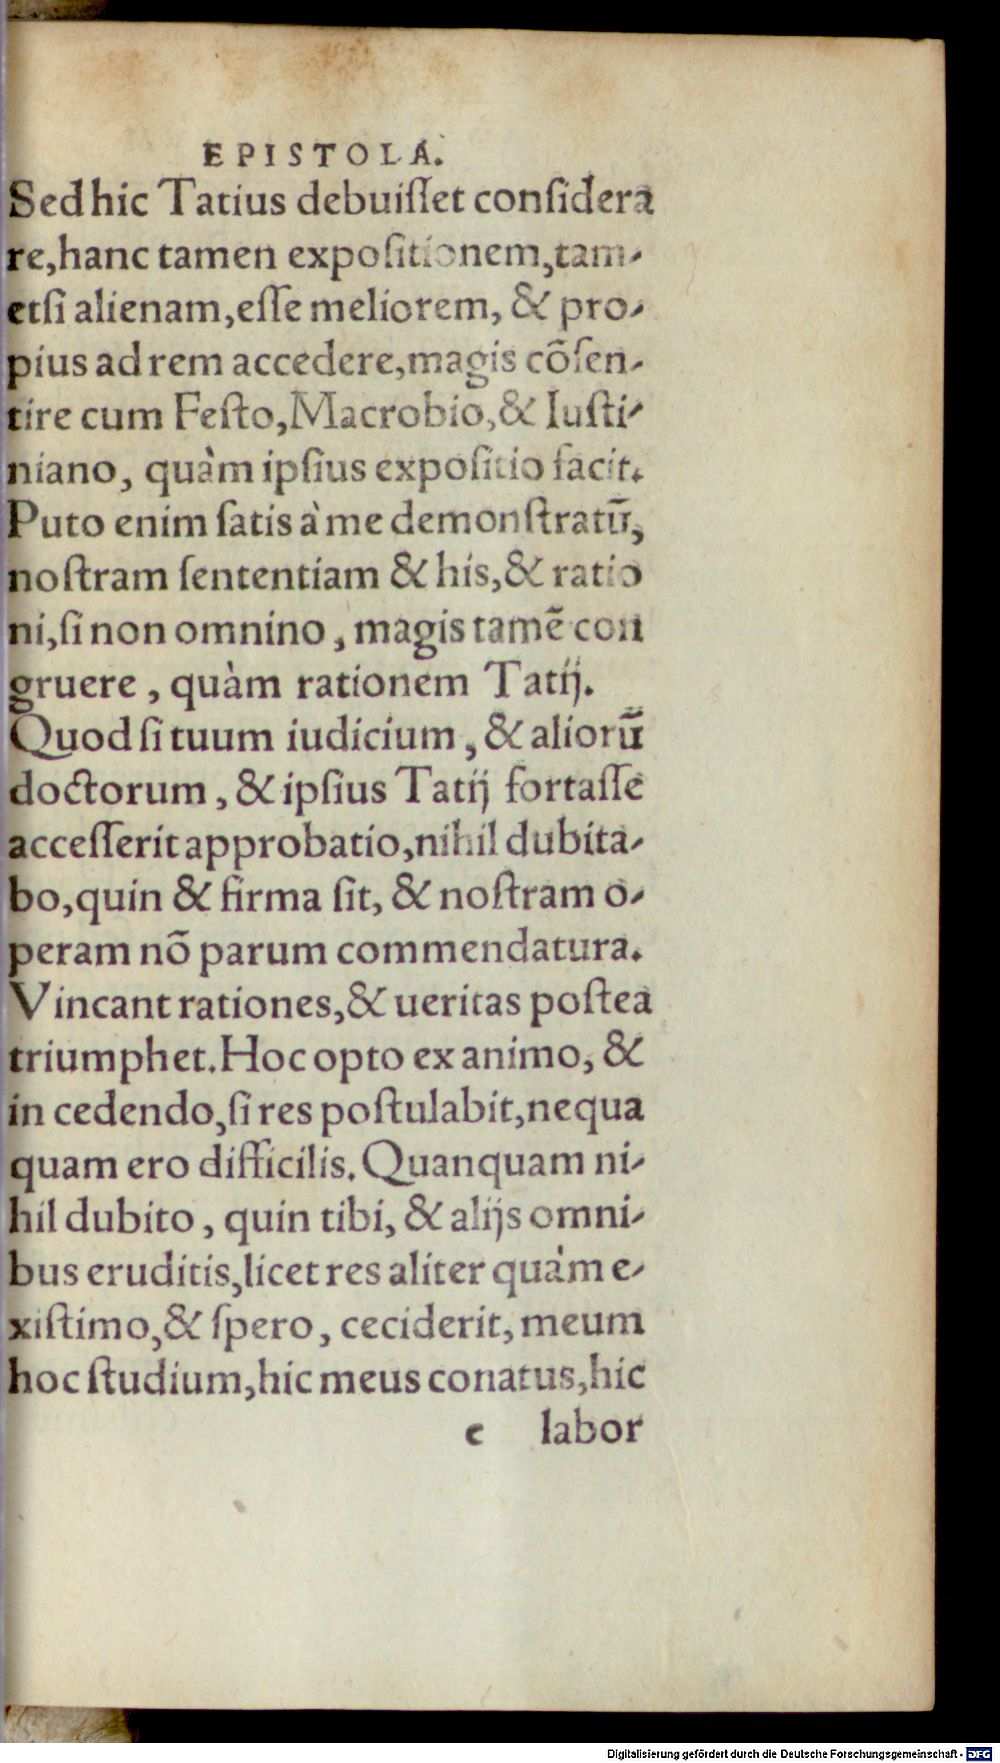 EPISTOLA.
Sed hic Tatius debuiſſet conſidera
re, hanc tamen expoſitionem, tam-
etſi alienam, eſſe meliorem, & pro-
pius ad rem accedere, magis cõſen-
tire cum Feſto, Macrobio, & Iuſti-
niano, quàm ipſius expoſitio facit.
Puto enim ſatis à me demonſtratũ,
noſtram ſententiam & his, & ratio
ni, ſi non omnino, magis tamẽ con
gruere, quàm rationem Tatij.
Quod ſi tuum iudicium, & aliorũ
doctorum, & ipſius Tatij fortaſſe
acceſſerit approbatio, nihil dubita-
bo, quin & firma ſit, & noſtram o-
peram nõ parum commendatura.
Vincant rationes, & ueritas poſtea
triumphet. Hoc opto ex animo, &
in cedendo, ſi res poſtulabit, nequa
quam ero difficilis. Quanquam ni-
hil dubito, quin tibi, & alijs omni-
bus eruditis, licet res aliter quàm e-
xiſtimo, & ſpero, ceciderit, meum
hoc ſtudium, hic meus conatus, hic
e labor
Digitalisierung gefördert durch die Deutsche Forschungsgemeinschaft - DFG